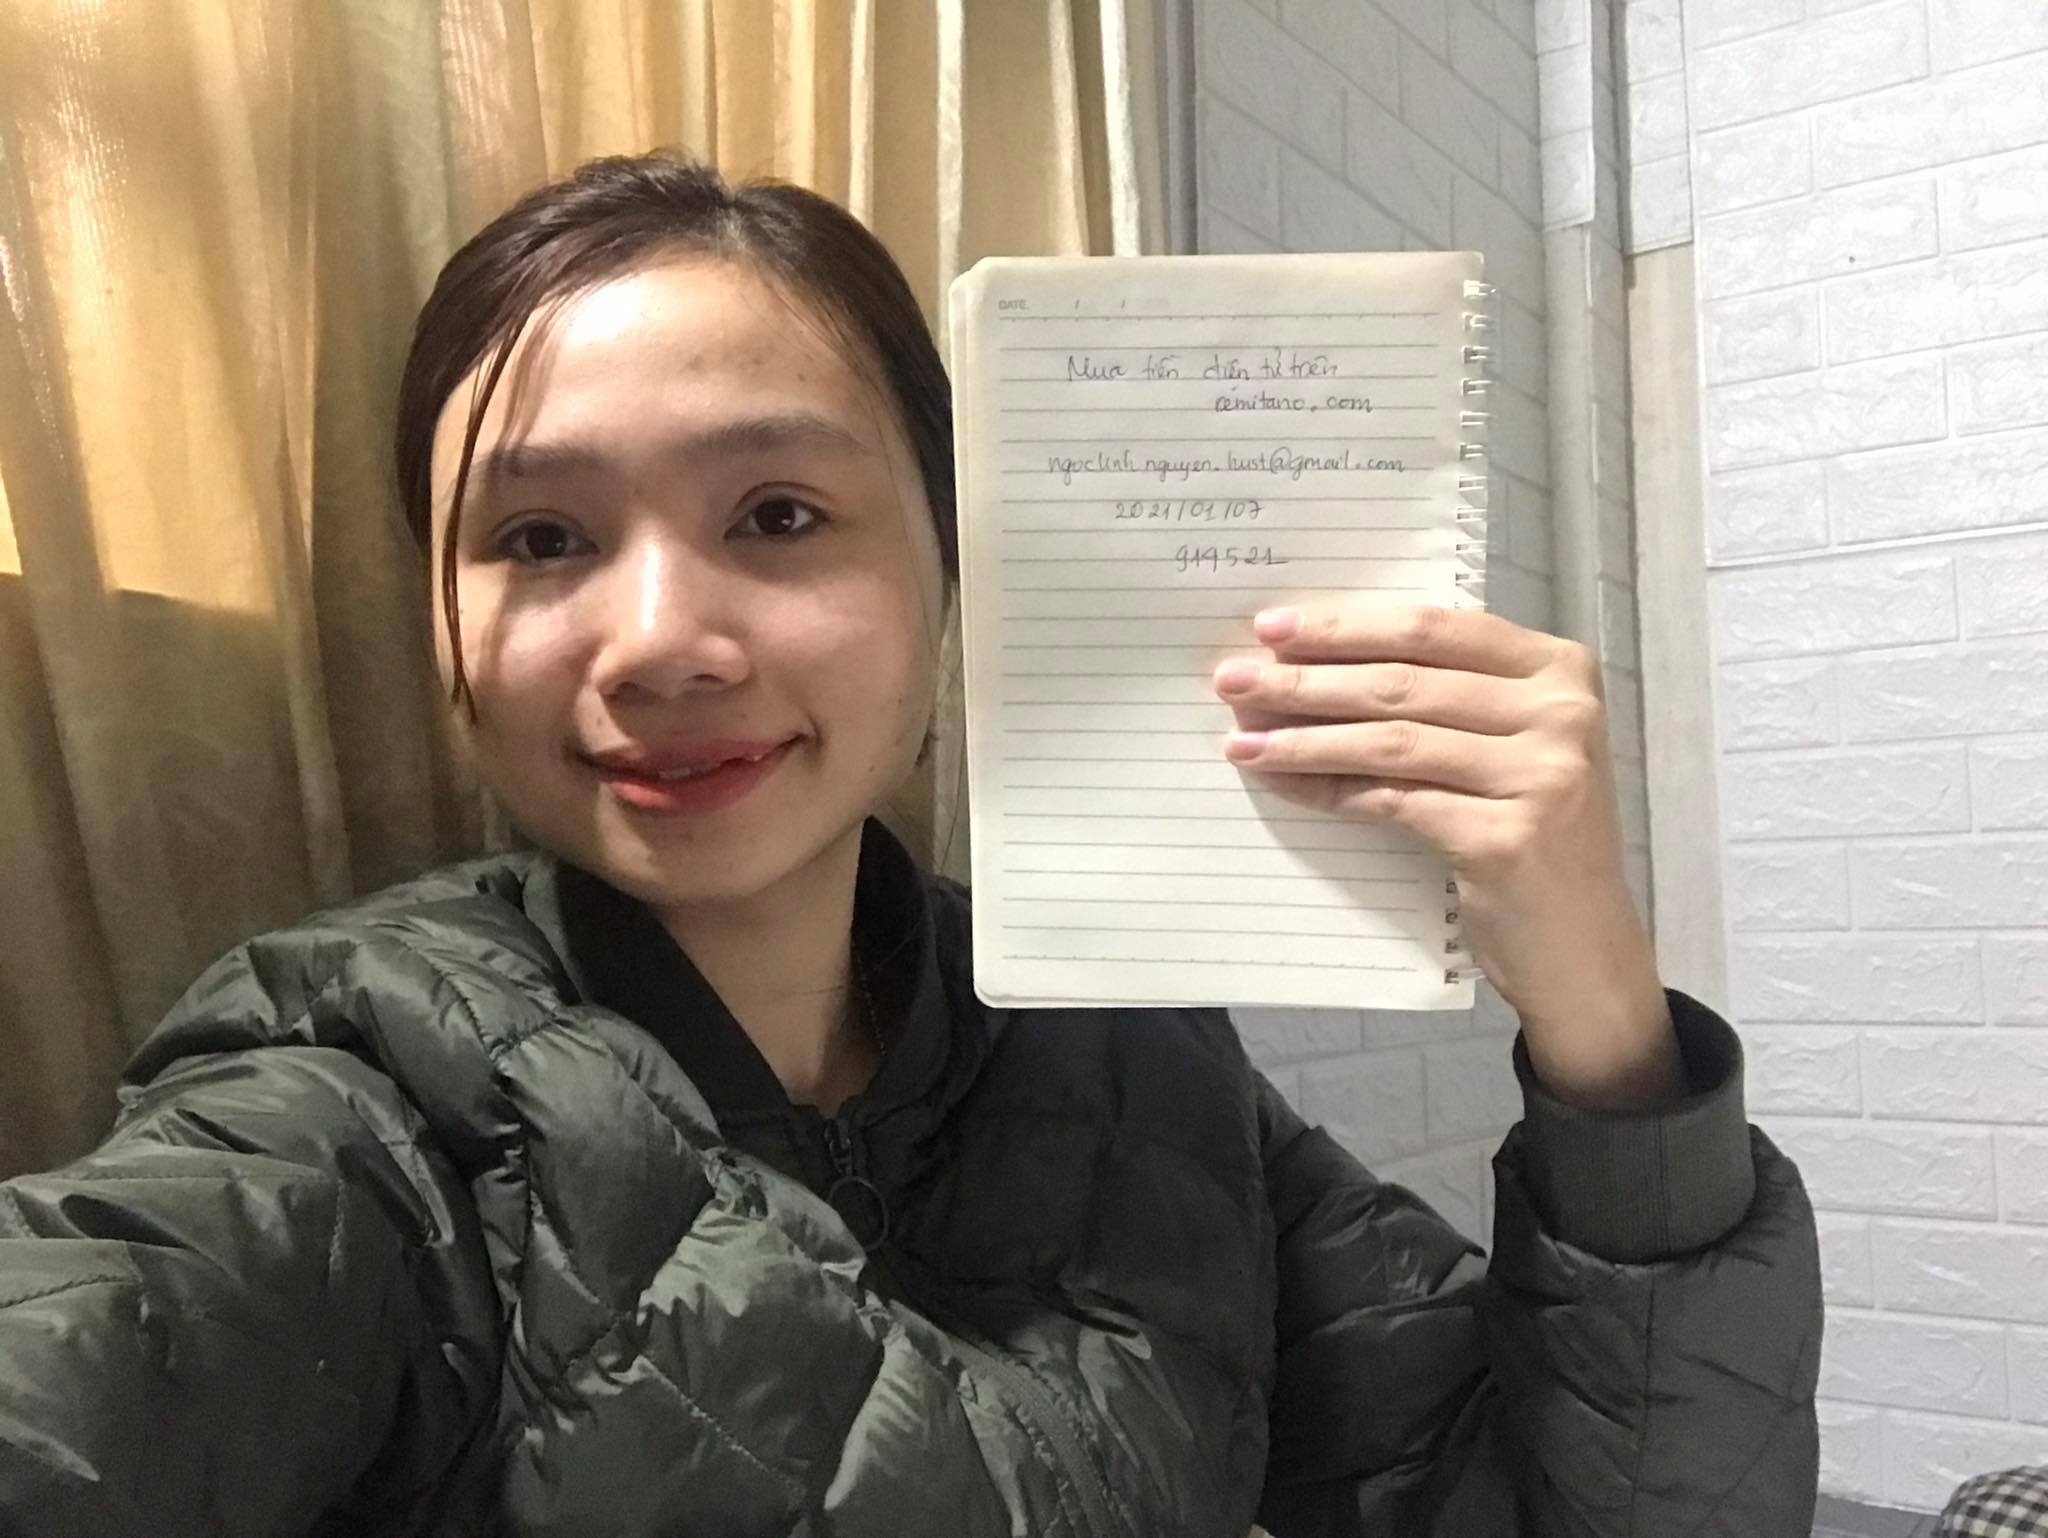 DATE / /
Mua tiền điện tử trên
remitano.com
ngoclinhnguyen.hust@gmail.com
2021/01/07
914521